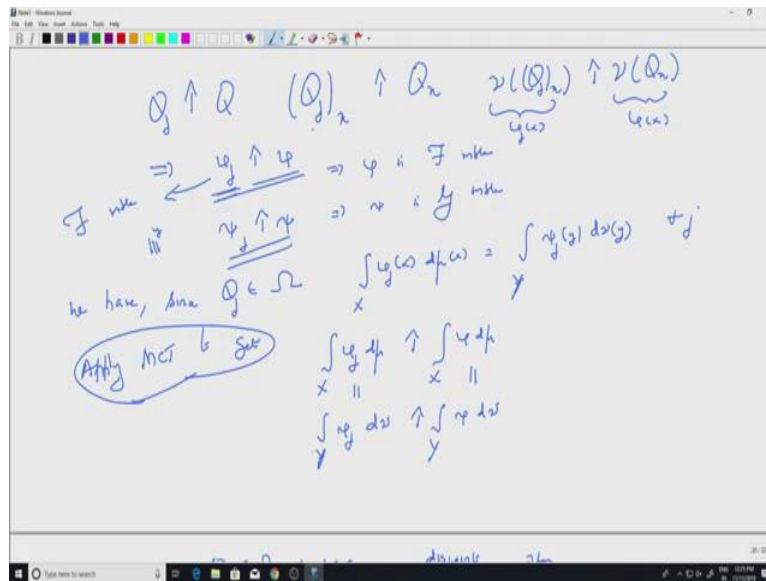 Note1 - Windows Journal
File Edit View Insert Actions Tools Help
Q_j ↑ Q (Q_j)_x ↑ Q_x ν((Q_j)_x) ↑ ν(Q_x)
φ_j(x) φ(x)
⇒ φ_j ↑ φ ⇒ φ is F mble
F mble
|||ly ψ_j ↑ ψ ⇒ ψ is G mble
We have, since Q_j ∈ Ω ∫_X φ_j(x) dμ(x) = ∫_Y ψ_j(y) dν(y) ∀ j
Apply MCT to get ∫_X φ_j dμ ↑ ∫_X φ dμ
|| ||
∫_Y ψ_j dν ↑ ∫_Y ψ dν
disjoint
Type here to search